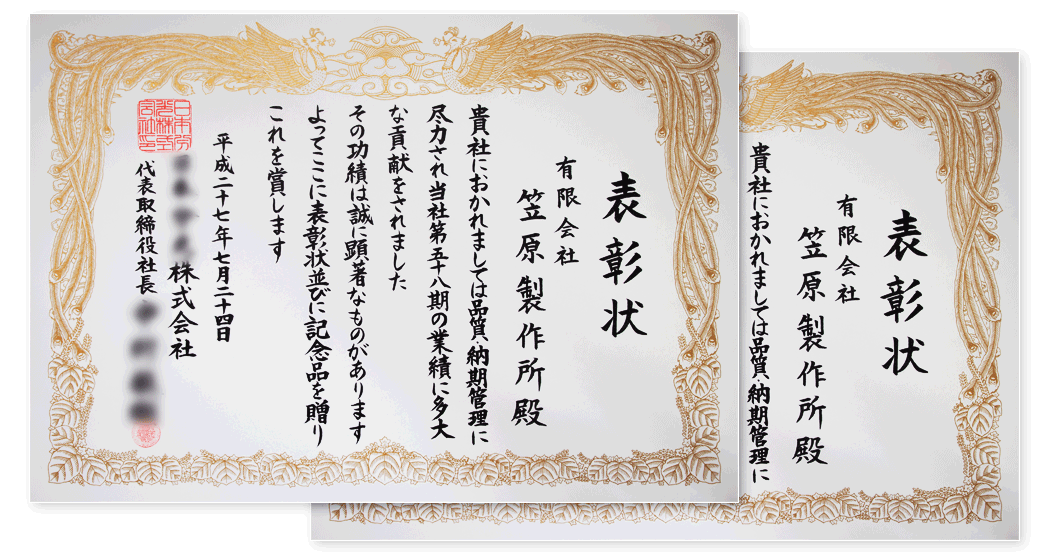 表彰状
有限会社
笠原製作所殿
貴社におかれましては品質、納期管理に
尽力され当社第五十八期の業績に多大
な貢献をされました
その功績は誠に顕著なものがあります
よってここに表彰状並びに記念品を贈り
これを賞します
平成二十七年七月二十四日
株式会社
代表取締役社長
表彰状
有限会社
笠原製作所殿
貴社におかれましては品質、納期管理に